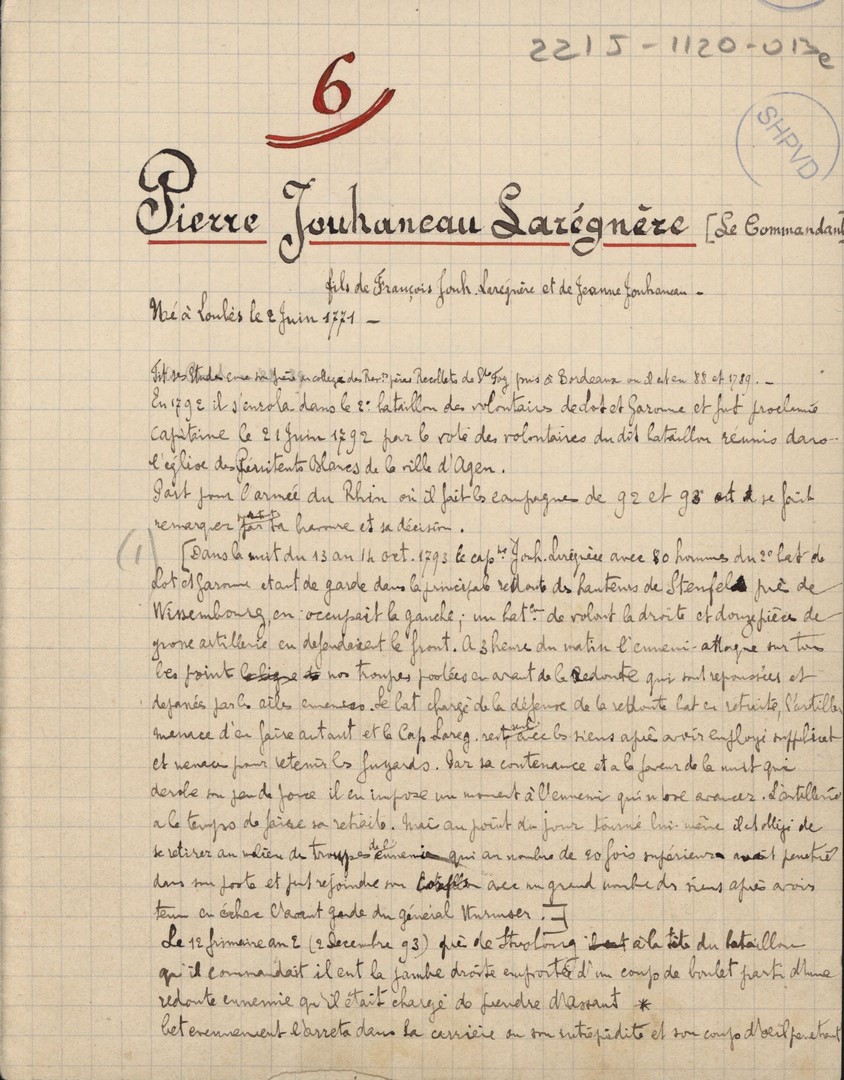 22 J5 - 1120 - 013e
6
SHPVD
Pierre Jouhaneau Larégnère [Le Commandant]
fils de François Jouh. Laregnère et de Jeanne Jouhaneau _
Né à Loubès le 2 Juin 1771 _
Fit ses Etudes au college des Rev.ds pères Recollets de Ste Foy puis à Bordeaux ou il est en 88 et 1789. _
En 1792 il s'enrola dans le 2e bataillon des volontaires de Lot et Garonne et fut proclamé
Capitaine le 21 Juin 1792 par le vote des volontaires du dit bataillon réunis dans
l'église des Pénitents Blancs de la ville d'Agen.
Part pour l'armée du Rhin où il fait les campagnes de 92 et 93 et se fait
remarquer par sa bravoure et sa décision.
(1) [Dans la nuit du 13 au 14 oct. 1793 le capne Jouh. Laregnère avec 80 hommes du 2e bat de
Lot et Garonne etant de garde dans la principale redoute des hauteurs de Stenfeld près de
Wissembourg, en occupait la gauche; un batn de volont la droite et douze pièces de
grosse artillerie en defendaient le front. A 3 heure du matin l'ennemi attaque sur tous
les point nos troupes postées en avant de la Redoute qui sont repoussées et
depassées par les ailes ennemies. Le bat chargé de la défense de la redoute bat en retraite, l'artillerie
menace d'en faire autant et le Cap Lareg. reste seul avec les siens après avoir employé supplices et
et menaces pour retenir les fuyards. Par sa contenance et a la faveur de la nuit qui
derobe son peu de force il en impose un moment à l'ennemi qui n'ose avancer. L'artillerie
a le temps de faire sa retraite. Mai au point du jour tourné lui-même il est obligé de
se retirer au milieu de troupes de l'ennemi qui au nombre de 20 fois supérieur avait penetré
dans son poste et put rejoindre son avec un grand nombre des siens après avoir
tenu en échec l'avant garde du général Wurmser.]
Le 12 frimaire an 2 (2 Decembre 93) près de Strasbourg à la tête du bataillon
qu'il commandait il eut la jambe droite emportée d'un coup de boulet parti d'une
redoute ennemie qu'il était chargé de prendre d'assaut *
Cet evennement l'arreta dans sa carrière ou son intrépidité et son coup d'oeil penetrant